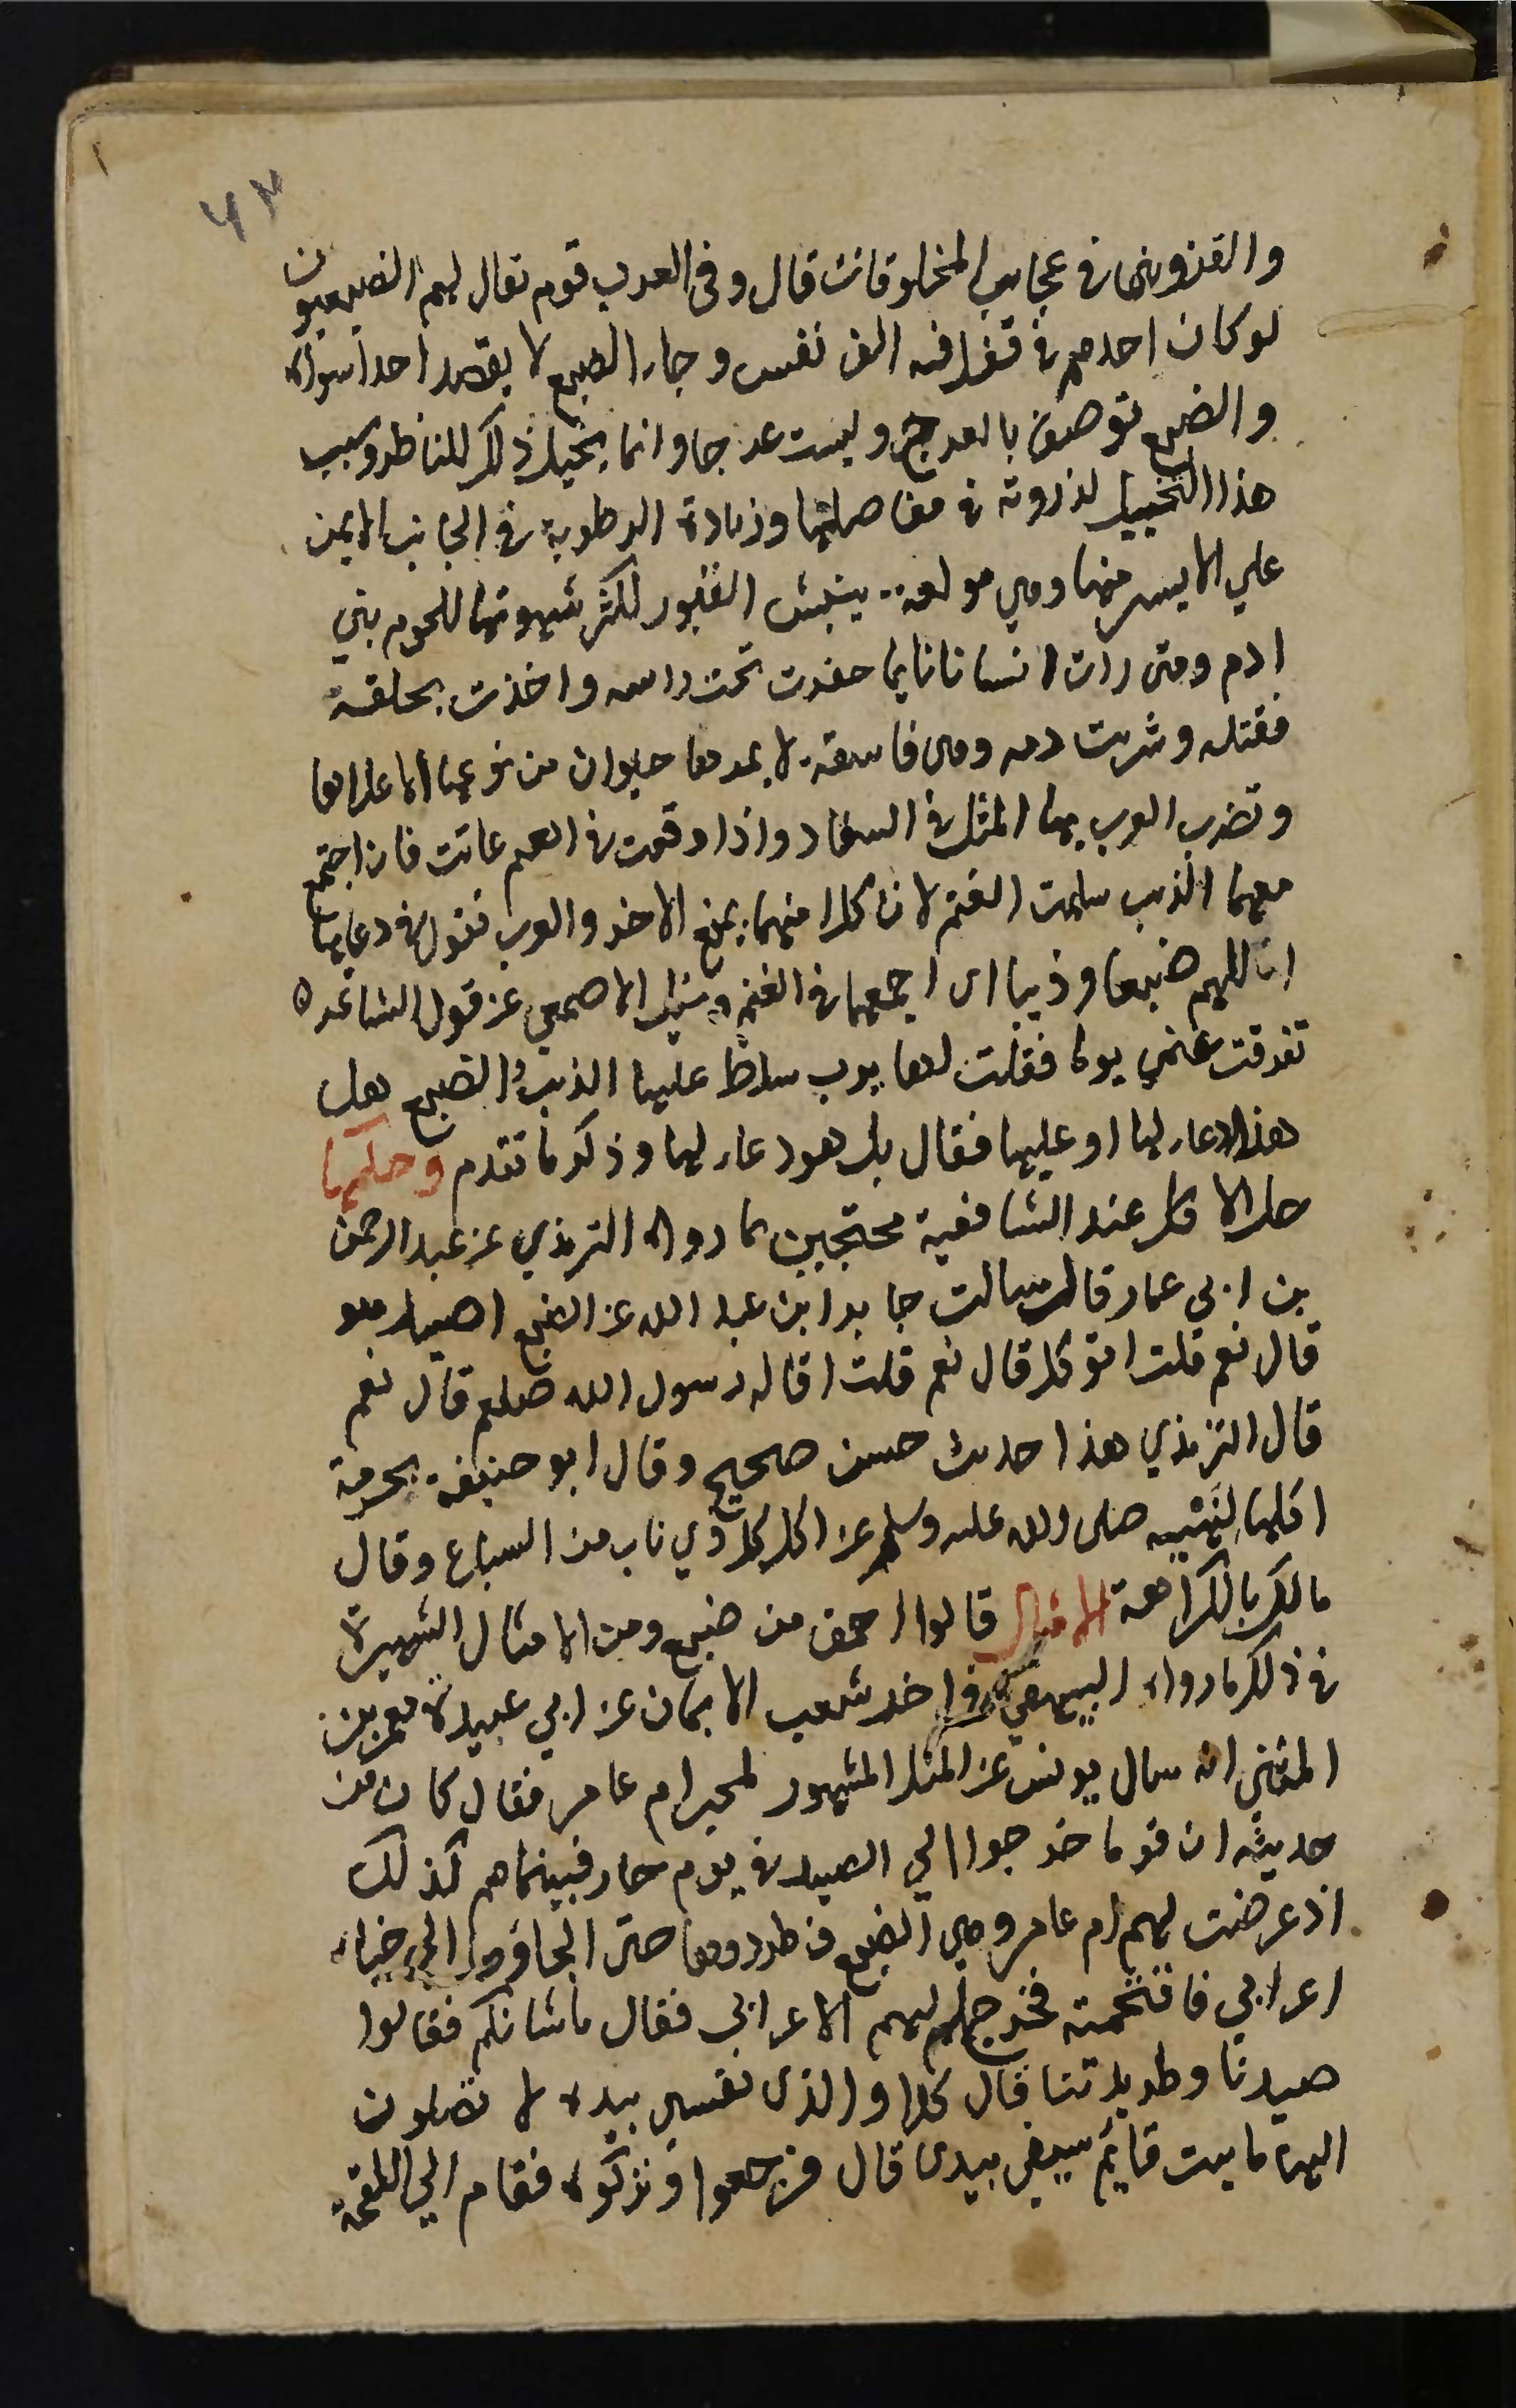 ٤٣
والقزوينى فى عجايب المخلوقات قال وفى العرب قوم يقال لهم الضبعيون
لو كان احدهم فى قفل فيه الف نفس وجاء الضبع لا يقصد احدا سواه
والضبع توصف بالعرج وليست عرجا وانما يخيل ذلك للناظر وسبب
هذا التخييل لذروته فى مفاصلها وزيادة الرطوبة فى الجانب الايمن
علي الايسر منها وهي مولعة بنبش القبور لكثر شهوتها للحوم بني
ادم ومتى رات انسانا نايما حفرت تحت راسه واخذت بحلقه
فقتله وشربت دمه وهى فاسقة لا يمر بها حيوان من نوعها الا علاها
وتضرب العرب بها المثل فى الفساد واذا وقعت فى الغنم عاثت فان اجتمع
معهما الذيب سلمت الغنم لان كلا منهما يمنع الاخر والعرب تقول فى دعايها
اللهم ضبعا وذيبا اى اجمعهما فى الغنم وسيل الاصمعي عن قول الشاعر ه
تفرقت غنمي يوما فقلت لها يرب سلط عليها الذيب والضبع هل
هذا الدعا لها او عليها فقال بل هو دعاء لها وذكر ما تقدم وحكمها
حل الاكل عند الشافعية محتجين بما رواه الترمذي عن عبد الرحمن
بن ابى عمار قال سالت جابر ابن عبد الله عن الضبع اصيد هو
قال نعم قلت اتوكل قال نعم قلت اقاله رسول الله صلعم قال نعم
قال الترمذي هذا حديث حسن صحيح وقال ابو حنيفة بحرمة
اكلها لنهيه صلى الله عليه وسلم عن اكل كل ذي ناب من السباع وقال
مالك بالكراهة الامثال قالوا احمق من ضبع ومن الامثال الشهيرة
فى ذلك ما رواه البيهقي فى اخر شعب الايمان عن ابي عبيدة معمر بن
المثنى انه سال يونس عن المثل المشهور لمجير ام عامر فقال كان من
حديثه ان قوما خرجوا الي الصيد فى يوم حار فبينما هم كذلك
اذ عرضت لهم ام عامر وهي الضبع فطردوها حتى الجاؤوها الي خباء
اعرابي فاقتحمته فخرج اليهم الاعرابي فقال ما شانكم فقالوا
صيدنا وطريدتنا قال كلا والذى نفسي بيده لا تصلون
اليها ما ثبت قايم سيفي بيدى قال فرجعوا وتركوه فقام الي اللقحة